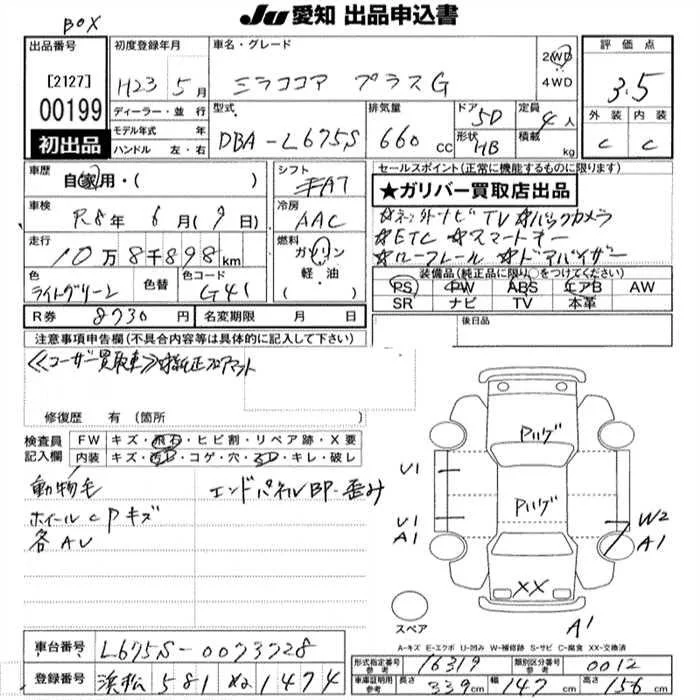 BOX
JU 愛知 出品申込書
出品番号
[2127]
00199
初出品
初度登録年月
H23 5月
ディーラー・並行
モデル年式 年
ハンドル 左・右
車名・グレード
ミラココア プラスG
2WD
4WD
型式
DBA-L675S
排気量
660 cc
ドア
5D
形状
HB
定員
4人
積載
kg
評価点
3.5
外装 内装
C C
車歴
自家用・( )
車検
R8年 6月(9日)
走行
10万8千898km
色
ライトグリーン
色替
色コード
G41
シフト
AT
冷房
AAC
燃料
ガソリン
軽・油
( )
セールスポイント(正常に機能するものに限ります)
★ガリバー買取店出品
☆ネッツトナビ TV ☆バックカメラ
☆ETC ☆スマートキー
☆ルーフレール ☆ドアバイザー
装備品(純正品に限り○をつけてください)
PS PW ABS エアB AW
SR ナビ TV 本革
R券 8730円
名変期限 月 日
後日品
注意事項申告欄(不具合内容等は具体的に記入して下さい)
≪ユーザー買取車≫ 純正フロアマット
修復歴 有(箇所
検査員記入欄
FW キズ・飛石・ヒビ割・リペア跡・X要
内装 キズ・汚れ・コゲ・穴・スレ・キレ・破レ
動物毛
ホイールCPキズ
各AU
エンドパネルBP・歪み
Pいげ
Pいげ
U1
U1
A1
W2
A1
XX
A1
スペア
A-キズ E-エクボ U-凹み W-補修跡 S-サビ C-腐食 XX-交換済
車台番号 L675S-0073728
登録番号 浜松 581 1474
形式指定番号 参考 16319
類別区分番号 参考 0012
車庫証明用 参考 長さ 339cm 幅 147cm 高さ 156cm